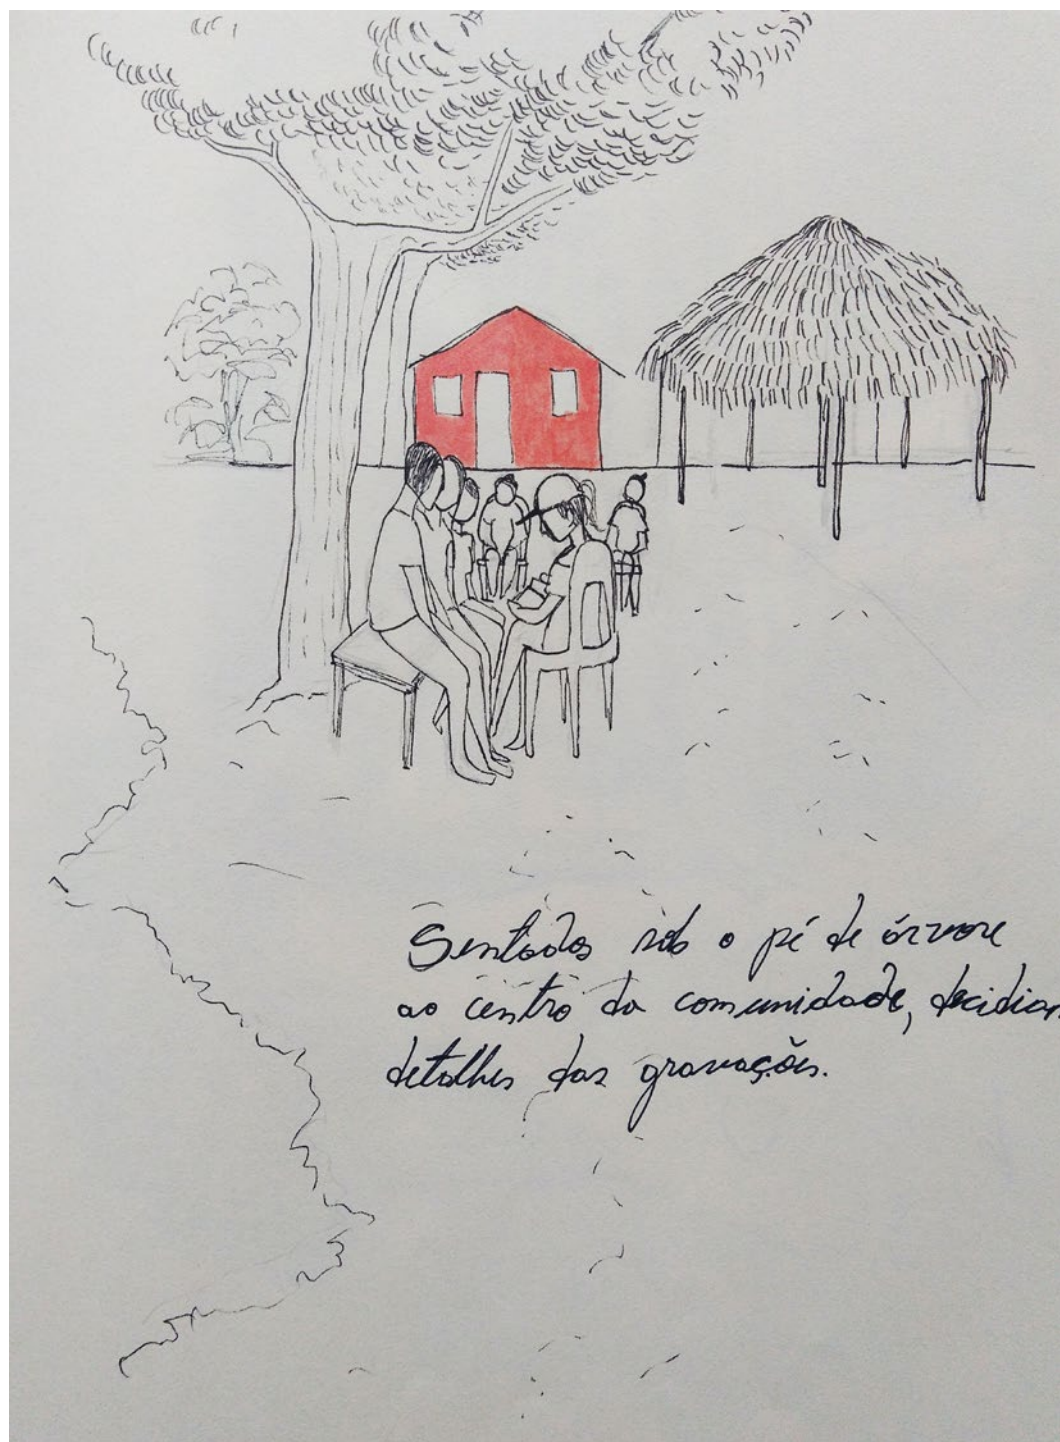 Sentados sob o pé de árvore
ao centro da comunidade, decidiam
detalhes das gravações.